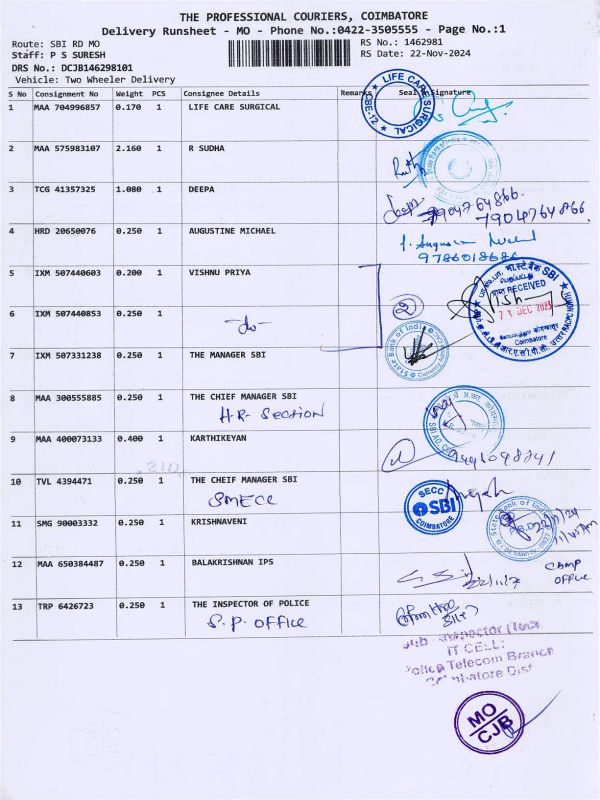 THE PROFESSIONAL COURIERS, COIMBATORE
Delivery Runsheet - MO - Phone No.:0422-3505555 - Page No.:1
Route: SBI RD MO
RS No.: 1462981
Staff: P S SURESH
RS Date: 22-Nov-2024
DRS No.: DCJB146298101
Vehicle: Two Wheeler Delivery
S No Consignment No Weight PCS Consignee Details Remarks Seal Signature
1 MAA 704996857 0.170 1 LIFE CARE SURGICAL
LIFE CARE SURGICAL CBE-12
2 MAA 575983107 2.160 1 R SUDHA
3 TCG 41357325 1.080 1 DEEPA
Deepa 7904764866
7904764866
4 HRD 20650076 0.250 1 AUGUSTINE MICHAEL
9786018686
5 IXM 507440603 0.200 1 VISHNU PRIYA
SBI RECEIVED
DEC
Coimbatore
6 IXM 507440853 0.250 1
do
2
State Bank of India
7 IXM 507331238 0.250 1 THE MANAGER SBI
8 MAA 300555885 0.250 1 THE CHIEF MANAGER SBI
HR Section
9 MAA 400073133 0.400 1 KARTHIKEYAN
10 TVL 4394471 0.250 1 THE CHEIF MANAGER SBI
SMECC
SECC
SBI
COIMBATORE
11 SMG 90003332 0.250 1 KRISHNAVENI
State Bank of India
12 MAA 650384487 0.250 1 BALAKRISHNAN IPS
CAMP
OFFICE
13 TRP 6426723 0.250 1 THE INSPECTOR OF POLICE
S.P. OFFICE
IT CELL
Police Telecom Branch
MO
CJB